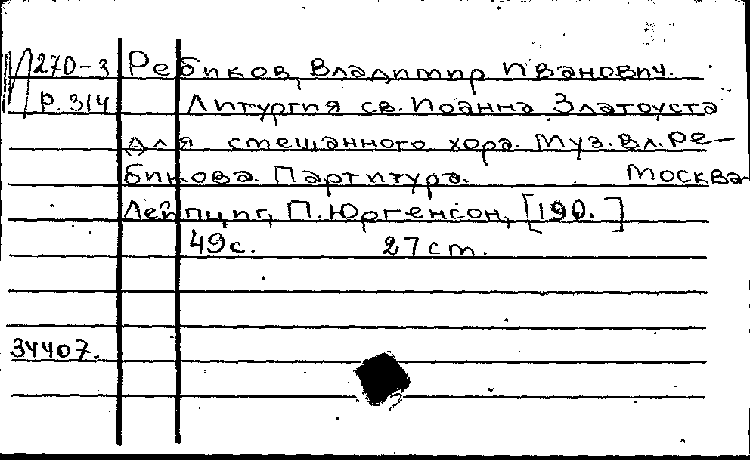 П270-3 Ребиков, Владимир Иванович.
Р.314 Литургия св. Иоанна Златоуста
для смешанного хора. Муз. Вл. Ре-
бикова. Партитура. Москва-
Лейпциг, П. Юргенсон, [190. ]
49 с. 27 ст.
34407.